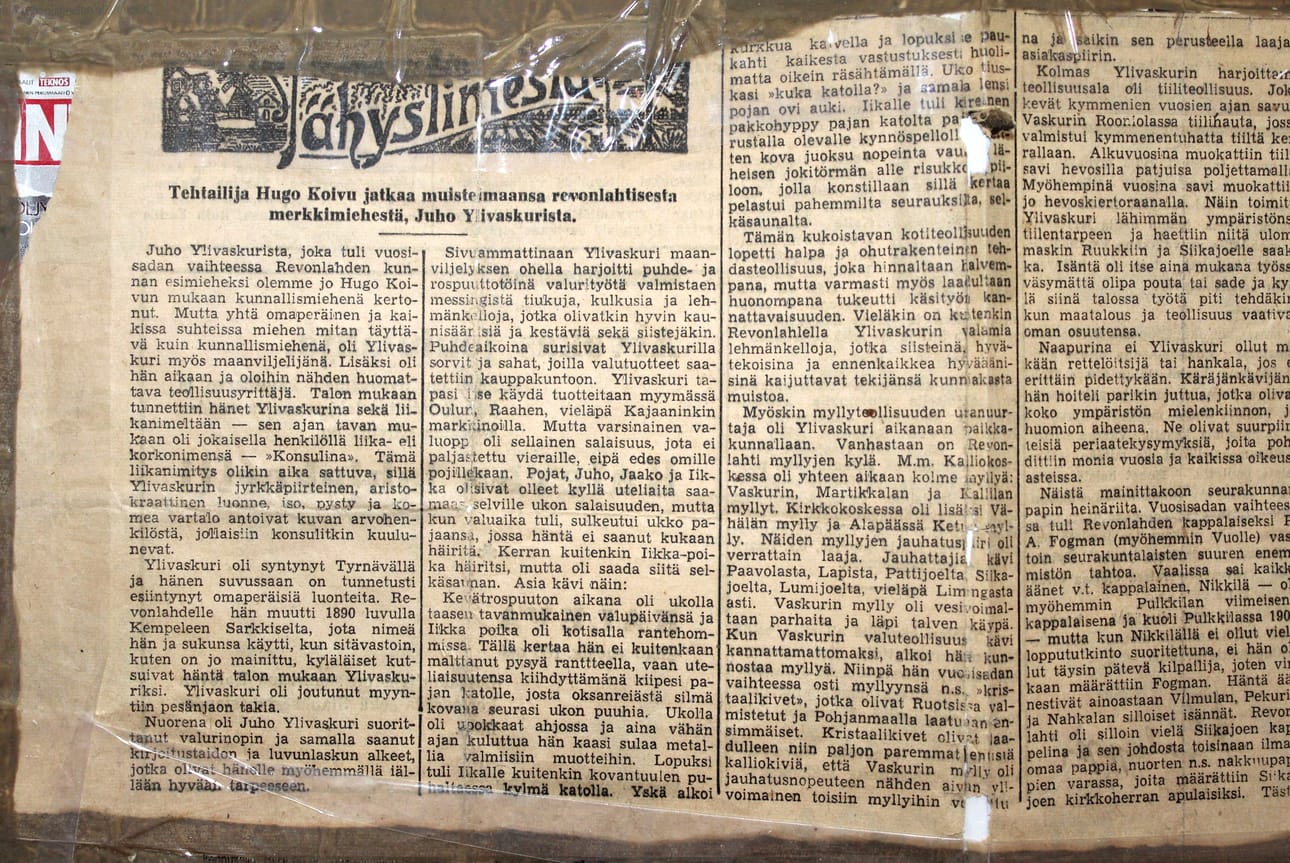 TEKNOS
N
Jähyslinesiä
Tehtailija Hugo Koivu jatkaa muistelmaansa revonlahtisesta
merkkimiehestä, Juho Ylivaskurista.
Juho Ylivaskurista, joka tuli vuosi-
sadan vaihteessa Revonlahden kun-
nan esimieheksi olemme jo Hugo Koi-
vun mukaan kunnallismiehenä kerto-
nut. Mutta yhtä omaperäinen ja kai-
kissa suhteissa miehen mitan täyttä-
vä kuin kunnallismiehenä, oli Ylivas-
kuri myös maanviljelijänä. Lisäksi oli
hän aikaan ja oloihin nähden huomat-
tava teollisuusyrittäjä. Talon mukaan
tunnettiin hänet Ylivaskurina sekä lii-
kanimeltään — sen ajan tavan mu-
kaan oli jokaisella henkilöllä liika- eli
korkonimensä — »Konsulina». Tämä
liikanimitys olikin aika sattuva, sillä
Ylivaskurin jyrkkäpiirteinen, aristo-
kraattinen luonne, iso, pysty ja ko-
mea vartalo antoivat kuvan arvohen-
kilöstä, jollaisiin konsulitkin kuulu-
nevat.
Ylivaskuri oli syntynyt Tyrnävällä
ja hänen suvussaan on tunnetusti
esiintynyt omaperäisiä luonteita. Re-
vonlahdelle hän muutti 1890 luvulla
Kempeleen Sarkkiselta, jota nimeä
hän ja sukunsa käytti, kun sitävastoin,
kuten on jo mainittu, kyläläiset kut-
suivat häntä talon mukaan Ylivasku-
riksi. Ylivaskuri oli joutunut myyn-
tiin pesänjaon takia.
Nuorena oli Juho Ylivaskuri suorit-
tanut valurinopin ja samalla saanut
kirjoitustaidon ja luvunlaskun alkeet,
jotka olivat hänelle myöhemmällä iäl-
lään hyvään tarpeeseen.
Sivuammattinaan Ylivaskuri maan-
viljelyksen ohella harjoitti puhde- ja
rospuuttotöinä valurityötä valmistaen
messingistä tiukuja, kulkusia ja leh-
mänkelloja, jotka olivatkin hyvin kau-
nisäänisiä ja kestäviä sekä siistejäkin.
Puhdeaikoina surisivat Ylivaskurilla
sorvit ja sahat, joilla valutuotteet saa-
tettiin kauppakuntoon. Ylivaskuri ta-
pasi itse käydä tuotteitaan myymässä
Oulun, Raahen, vieläpä Kajaaninkin
markkinoilla. Mutta varsinainen va-
luoppi oli sellainen salaisuus, jota ei
paljastettu vieraille, eipä edes omille
pojillekaan. Pojat, Juho, Jaako ja Iik-
ka olisivat olleet kyllä uteliaita saa-
maan selville ukon salaisuuden, mutta
kun valuaika tuli, sulkeutui ukko pa-
jaansa, jossa häntä ei saanut kukaan
häiritä. Kerran kuitenkin Iikka-poi-
ka häiritsi, mutta oli saada siitä sel-
käsaunan. Asia kävi näin:
Kevätrospuuton aikana oli ukolla
taasen tavanmukainen valupäivänsä ja
Iikka poika oli kotisalla rantehom-
missa. Tällä kertaa hän ei kuitenkaan
malttanut pysyä ranttteella, vaan ute-
liaisuutensa kiihdyttämänä kiipesi pa-
jan katolle, josta oksanreiästä silmä
kovana seurasi ukon puuhia. Ukolla
oli upokkaat ahjossa ja aina vähän
ajan kuluttua hän kaasi sulaa metal-
lia valmiisiin muotteihin. Lopuksi
tuli Iikalle kuitenkin kovantuulen pu-
haltaessa kylmä katolla. Yskä alkoi
kurkkua kaivella ja lopuksi se pau-
kahti kaikesta vastustuksesta huoli-
matta oikein räsähtämällä. Uko tius-
kasi »kuka katolla?» ja samala lensi
pojan ovi auki. Iikalle tuli kireinen
pakkohyppy pajan katolta
rustalla olevalle kynnöspellolle
ten kova juoksu nopeinta lä-
heisen jokitörmän alle risukkoon pii-
loon, jolla konstillaan sillä kertaa
pelastui pahemmilta seurauksilta, sel-
käsaunalta.
Tämän kukoistavan kotiteollisuuden
lopetti halpa ja ohutrakenteinen teh-
dasteollisuus, joka hinnaltaan halvem-
pana, mutta varmasti myös laadultaan
huonompana tukeutti käsityön kan-
nattavaisuuden. Vieläkin on kutenkin
Revonlahlella Ylivaskurin valamia
lehmänkelloja, jotka siisteinä, hyvä-
tekoisina ja ennenkaikkea hyvääni-
sinä kaijuttavat tekijänsä kunniakasta
muistoa.
Myöskin myllyteollisuuden uranuur-
taja oli Ylivaskuri aikanaan paikka-
kunnallaan. Vanhastaan on Revon-
lahti myllyjen kylä. M.m. Kalliokos-
kessa oli yhteen aikaan kolme myllyä:
Vaskurin, Martikkalan ja Kalillan
myllyt. Kirkkokoskessa oli lisäksi Vä-
hälän mylly ja Alapäässä myl-
ly. Näiden myllyjen jauhatuspiiri oli
verrattain laaja. Jauhattajia kävi
Paavolasta, Lapista, Pattijoelta, Siika-
joelta, Lumijoelta, vieläpä Limingasta
asti. Vaskurin mylly oli vesivoimal-
taan parhaita ja läpi talven käypä.
Kun Vaskurin valuteollisuus kävi
kannattamattomaksi, alkoi hän kun-
nostaa myllyä. Niinpä hän vuosisadan
vaihteessa osti myllyynsä n.s. »kris-
taalikivet», jotka olivat Ruotsissa val-
mistetut ja Pohjanmaalla laatuaan en-
simmäiset. Kristaalikivet olivat laa-
dulleen niin paljon paremmat
kalliokiviä, että Vaskurin mylly oli
jauhatusnopeuteen nähden aivan yli-
voimainen toisiin myllyihin
na ja saikin sen perusteella laaja
asiakaspiirin.
Kolmas Ylivaskurin
teollisuusala oli tiiliteollisuus. Jok
kevät kymmenien vuosien ajan savu
Vaskurin Rooniolassa tiilihauta, joss
valmistui kymmenentuhatta tiiltä ker
rallaan. Alkuvuosina muokattiin tiil
savi hevosilla patjuisa poljettamalla
Myöhempinä vuosina savi muokattii
jo hevoskiertoraanalla. Näin toimit
Ylivaskuri lähimmän ympäristöns
tiilentarpeen ja haettiin niitä ulom
maskin Ruukkiin ja Siikajoelle saak
ka. Isäntä oli itse aina mukana työss
väsymättä olipa pouta tai sade ja ky
lä siinä talossa työtä piti tehdäkin
kun maatalous ja teollisuus vaativa
oman osuutensa.
Naapurina ei Ylivaskuri ollut m
kään rettelöitsijä tai hankala, jos e
erittäin pidettykään. Käräjänkävijän
hän hoiteli parikin juttua, jotka oliva
koko ympäristön mielenkiinnon, j
huomion aiheena. Ne olivat suurpiir
teisiä periaatekysymyksiä, joita poh
dittiin monia vuosia ja kaikissa oikeus
asteissa.
Näistä mainittakoon seurakunnan
papin heinäriita. Vuosisadan vaihtees
sa tuli Revonlahden kappalaiseksi
A. Fogman (myöhemmin Vuolle) vas
toin seurakuntalaisten suuren enem
mistön tahtoa. Vaalissa sai kaikk
äänet v.t. kappalainen, Nikkilä — o
myöhemmin Pulkkilan viimeisen
kappalaisena ja kuoli Pulkkilassa 190
— mutta kun Nikkilällä ei ollut viel
loppututkinto suoritettuna, ei hän ol
lut täysin pätevä kilpailija, joten vir
kaan määrättiin Fogman. Häntä ää
nestivät ainoastaan Vilmulan, Pekuri
ja Nahkalan silloiset isännät. Revon
lahti oli silloin vielä Siikajoen kap
pelina ja sen johdosta toisinaan ilma
omaa pappia, nuorten n.s. nakkuupap
pien varassa, joita määrättiin Siika
joen kirkkoherran apulaisiksi. Täst